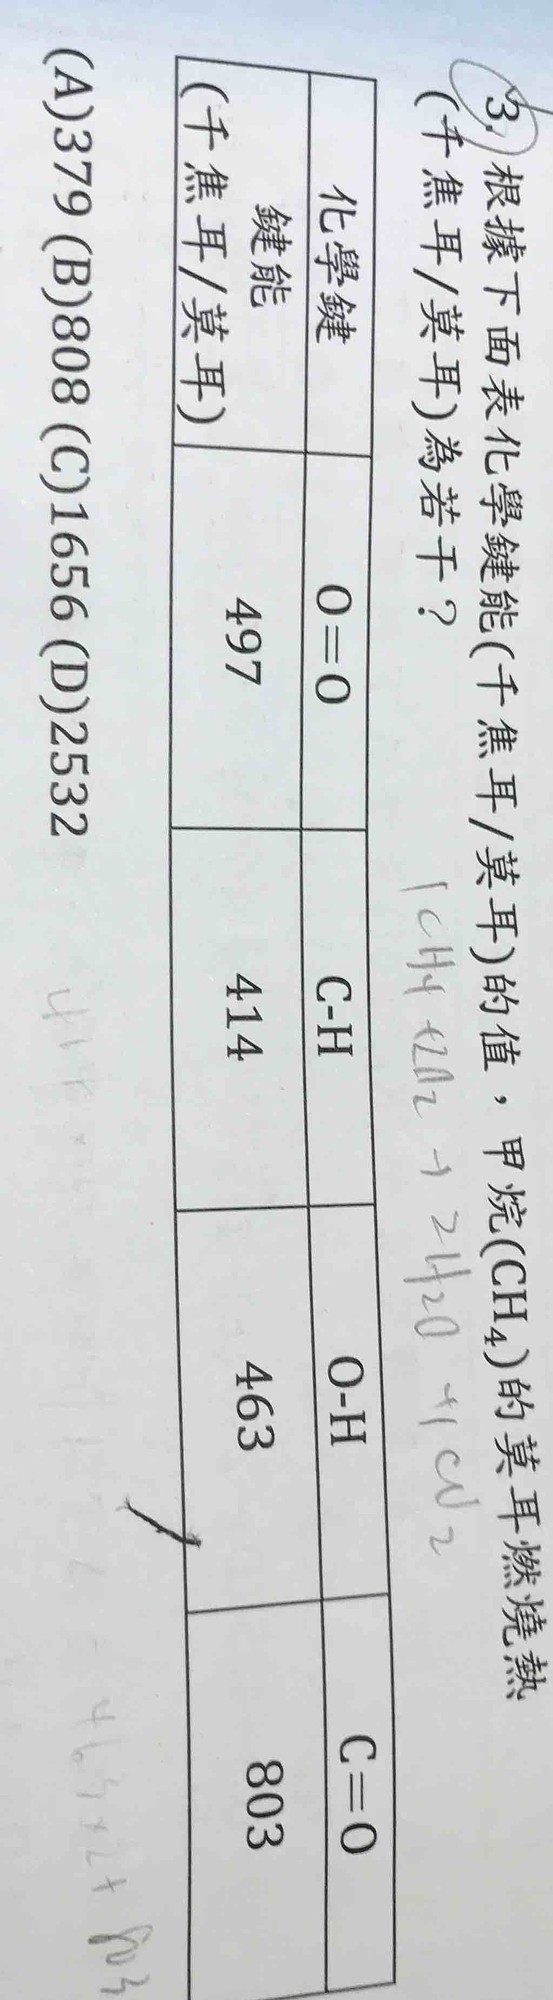 3. 根據下面表化學鍵能(千焦耳/莫耳)的值，甲烷(CH₄)的莫耳燃燒熱
(千焦耳/莫耳)為若干？
1CH4 +2O2 → 2H2O +1CO2
化學鍵 O=O C-H O-H C=O
鍵能
(千焦耳/莫耳) 497 414 463 803
(A)379 (B)808 (C)1656 (D)2532
463×2+803